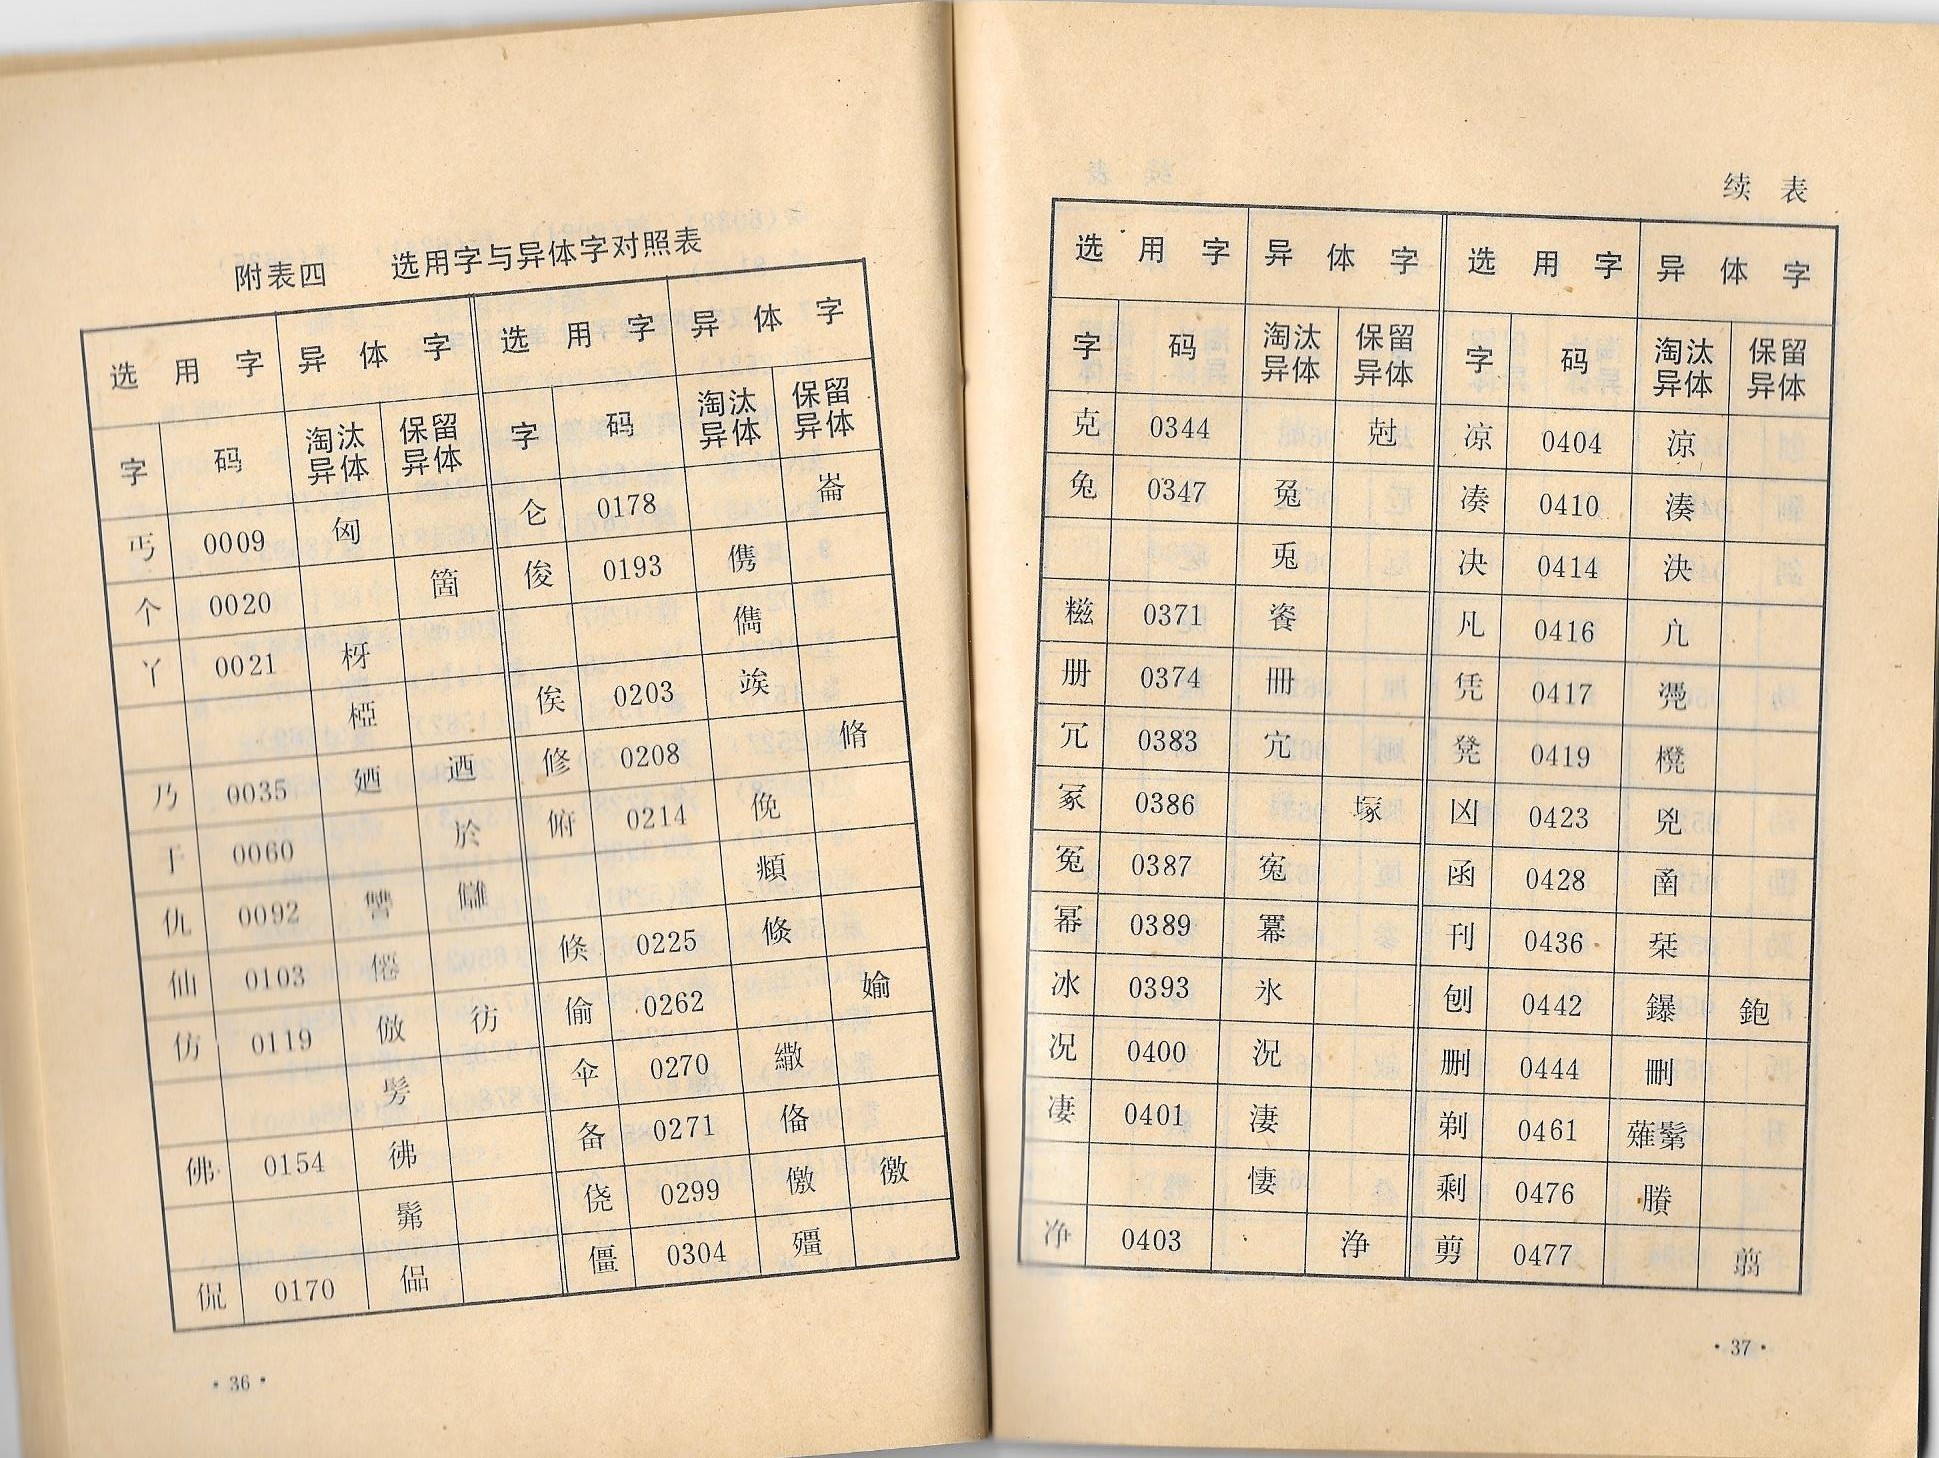 附表四 选用字与异体字对照表
选用字 异体字 选用字 异体字
字 码 淘汰异体 保留异体 字 码 淘汰异体 保留异体
丐 0009 匃 仑 0178 崙
个 0020 箇 俊 0193 㑺
丫 0021 枒 儁
椏 俟 0203 竢
乃 0035 廼 迺 修 0208 脩
于 0060 於 俯 0214 俛
仇 0092 讐 讎 頫
仙 0103 僊 倏 0225 倐
仿 0119 倣 彷 偷 0262 媮
髣 伞 0270 繖
佛 0154 彿 备 0271 俻
髴 侥 0299 儌 徼
侃 0170 偘 僵 0304 殭
· 36 ·
续表
选用字 异体字 选用字 异体字
字 码 淘汰异体 保留异体 字 码 淘汰异体 保留异体
克 0344 尅 凉 0404 涼
兔 0347 兎 凑 0410 湊
兎 决 0414 決
糍 0371 餈 凡 0416 凢
册 0374 冊 凭 0417 凴
冗 0383 宂 凳 0419 櫈
冢 0386 塚 凶 0423 兇
冤 0387 寃 函 0428 圅
幂 0389 冪 刊 0436 栞
冰 0393 氷 刨 0442 鑤 鉋
况 0400 況 删 0444 刪
凄 0401 淒 剃 0461 薙鬀
悽 剩 0476 賸
净 0403 淨 剪 0477 翦
· 37 ·